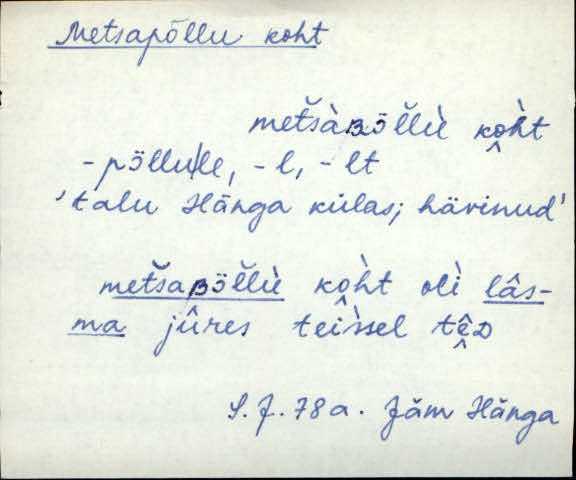 Metsapõllu koht
metšàʙɜ̈̆llὺ ko̭h̀t
-põllu|le, -l, -lt
'talu Hänga külas; hävinud'
metšaʙɜ̈̆llὺ kòh̀t olì lâs-
ma jûres teìssel tê̬ᴅ
S.J. 78a. Jäm Hänga